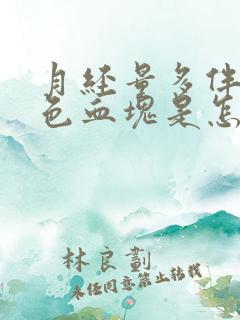 月经量多伴
色血块是怎
林良劃
未经同意禁止转载